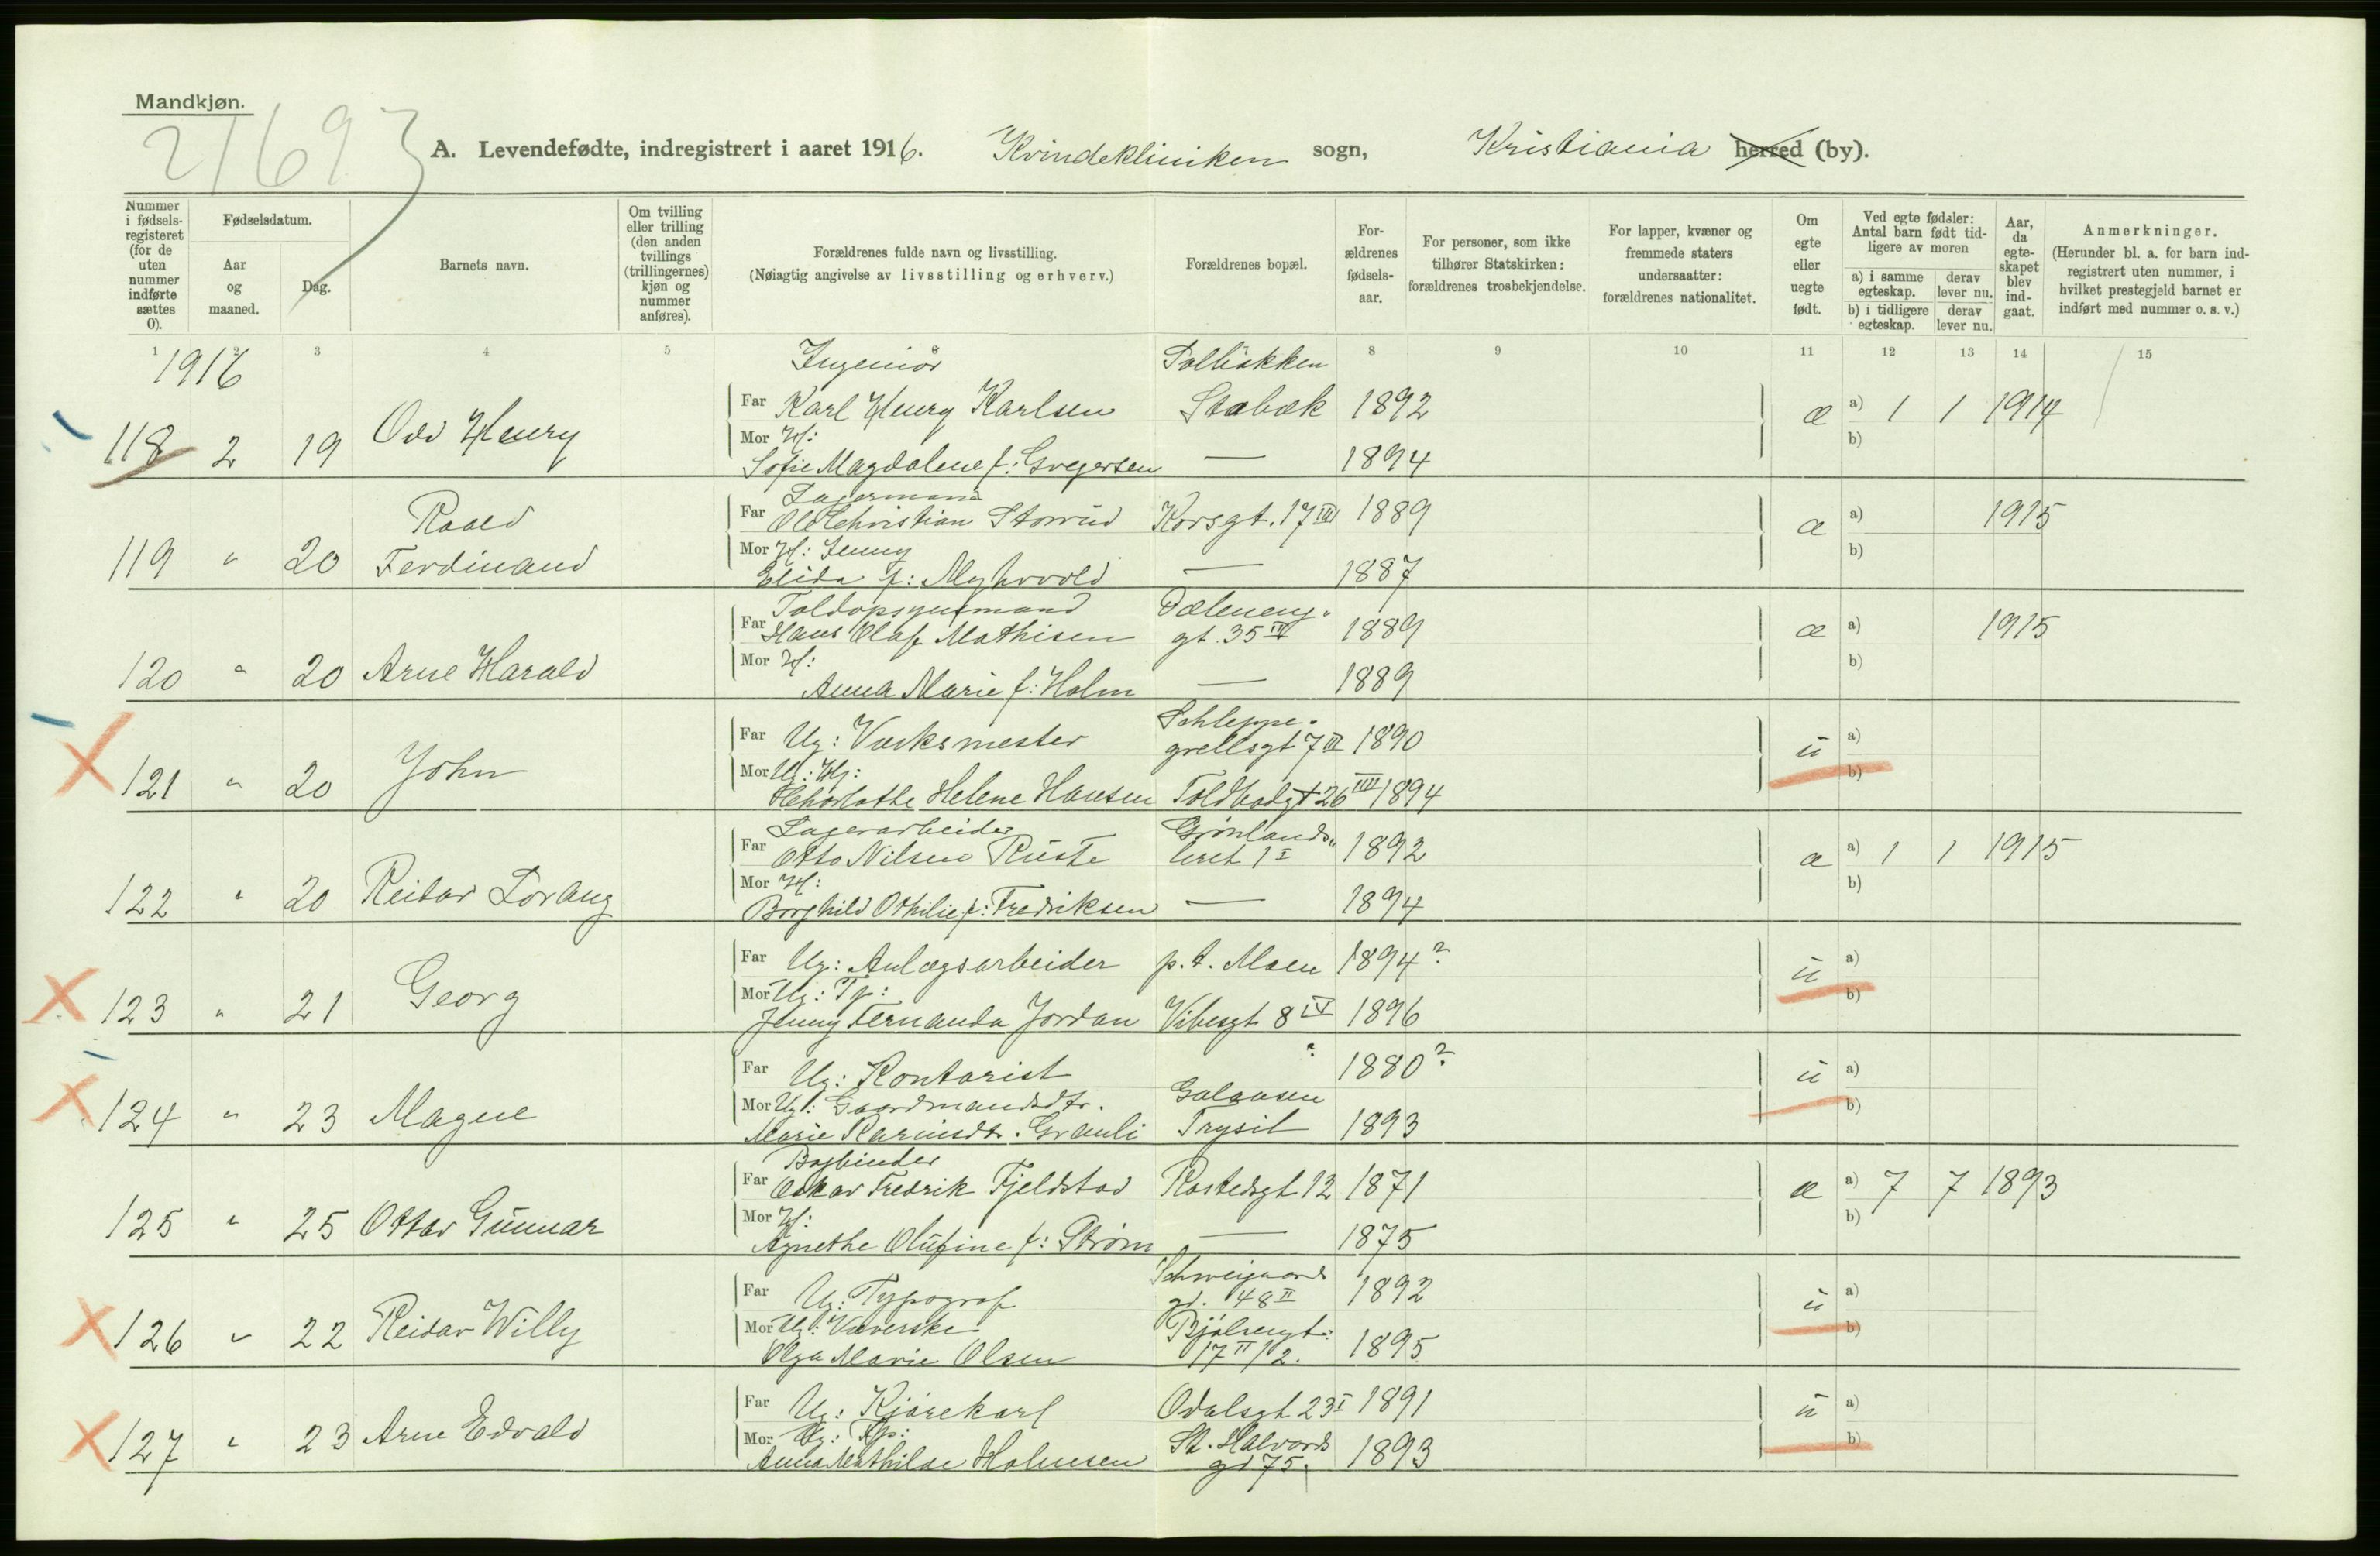 Mandkjøn.
21693
A. Levendefødte, indregistrert i aaret 1916. Kvindekliniken sogn, Kristiania herred (by).
Nummer i fødsels-registeret (for de uten nummer indførte sættes 0).
Fødselsdatum.
Aar og maaned.
Dag.
Barnets navn.
Om tvilling eller trilling (den anden tvillings (trillingernes) kjøn og nummer anføres).
Forældrenes fulde navn og livsstilling.
(Nøiagtig angivelse av livsstilling og erhverv.)
Forældrenes bopæl.
For-ældrenes fødsels-aar.
For personer, som ikke tilhører Statskirken: forældrenes trosbekjendelse.
For lapper, kvæner og fremmede staters undersaatter: forældrenes nationalitet.
Om egte eller uegte født.
Ved egte fødsler: Antal barn født tid-ligere av moren
a) i samme egteskap. derav lever nu.
b) i tidligere egteskap. derav lever nu.
Aar, da egte-skapet blev ind-gaat.
Anmerkninger.
(Herunder bl. a. for barn ind-registrert uten nummer, i hvilket prestegjeld barnet er indført med nummer o. s. v.)
1 2 3 4 5 8 9 10 11 12 13 14 15
1916
Ingeniør Solbakken
Far Karl Henry Karlsen Stabæk 1892 æ a) 1 1 1914
118 2 19 Odd Henry
Mor H: b)
Sofie Magdalene f: Gregersen — 1894
Lagermand
Far Ole Christian Storrud Korsgt. 17 III 1889 æ a) 1915
Roald
119 " 20 Ferdinand
Mor H: Jenny b)
Elida f: Myhrvold — 1887
Toldopsynsmand Dæleneng-
Far Hans Olaf Mathisen gt. 35 III 1889 æ a) 1915
120 " 20 Arne Harald
Mor H: b)
Anna Marie f: Holm — 1889
Schleppe-
Far Ug: Verksmester grellsgt 7 III 1890 u a)
121 " 20 John
Mor Ug: b)
Helene Hansen Toldbodgt 26 IIII 1894
Lagerarbeider Grønlands-
Far Otto Nilsen Ruste leret 1 I 1892 æ a) 1 1 1915
122 " 20 Reidar Lorang
Mor H: b)
Borghild Othilie f: Fredriksen — 1894
Far Ug: Anlægsarbeider p.t. Moen 1894? u a)
123 " 21 Georg
Mor Ug: Tp: b)
Jenny Fernanda Jordan Vibesgt 8 IV 1896
Far Ug: Kontorist ? 1880? u a)
124 " 23 Magne
Mor Ug: Gaardmandsdtr. Galaasen b)
Marie Grauli Trysil 1893
Bogbinder
Far Oskar Fredrik Fjeldstad Rostedsgt 12 1871 æ a) 7 7 1893
125 " 25 Ottar Gunnar
Mor H: b)
Agnethe Olufine f: Strøm — 1875
Schweigaards
Far Ug: Typograf gt. 48 II 1892 u a)
126 " 22 Reidar Willy
Mor Ug: Væverske Bjølsengt: b)
Olga Marie Olsen 17 II/2. 1895
Far Ug: Kjørekarl Odalsgt 23 I 1891 u a)
127 " 23 Arne Edvald
Mor Ug: St. Halvards b)
Anna Mathilde Holmsen gt 75. 1893